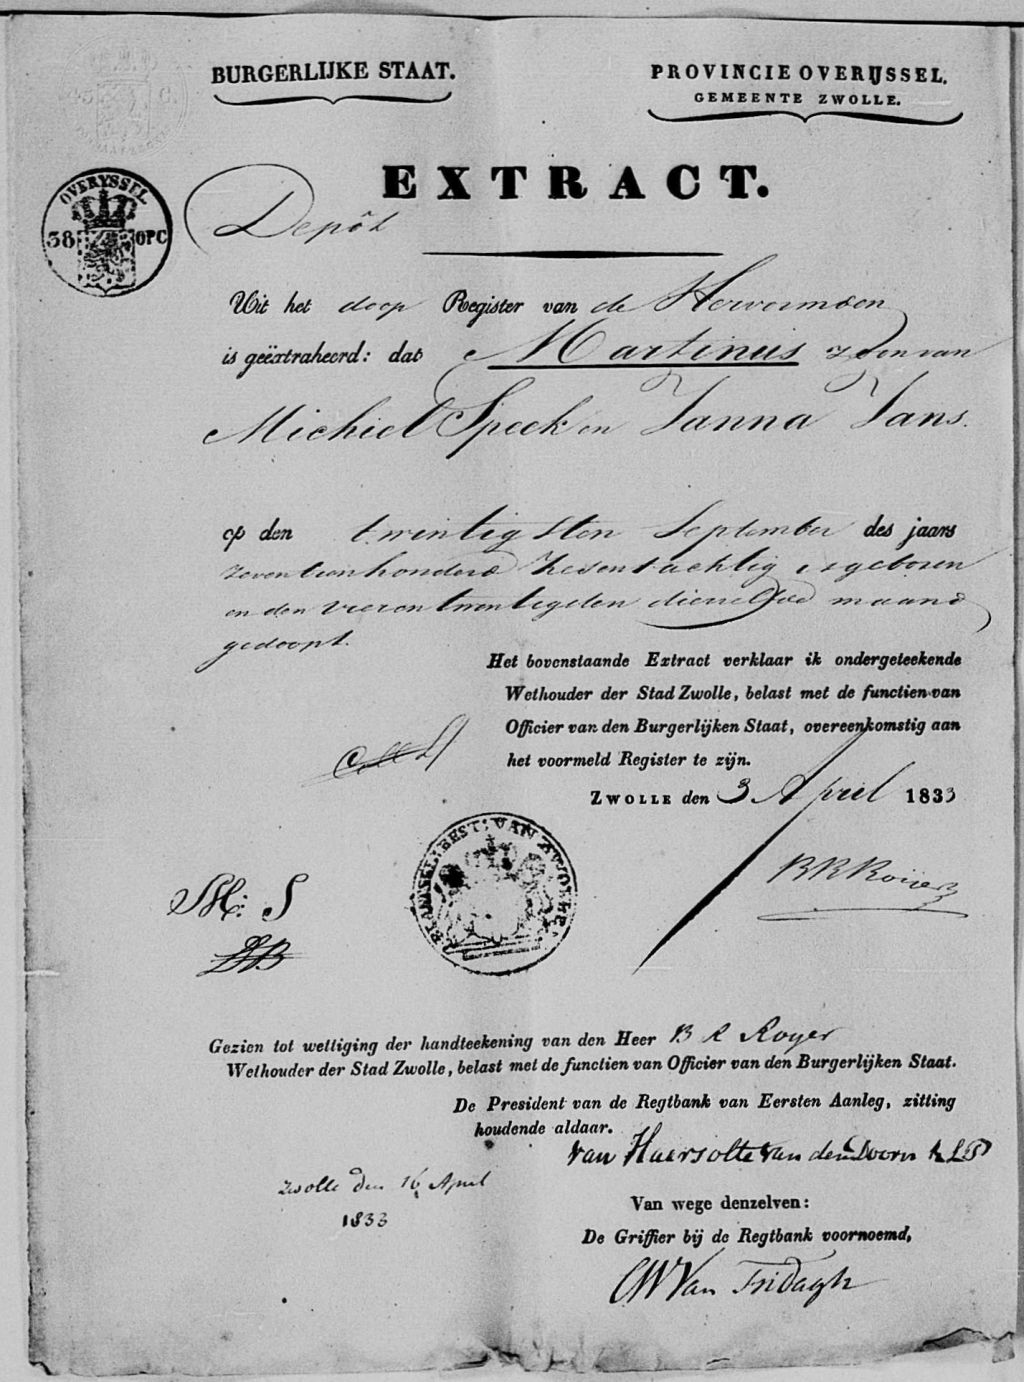 BURGERLIJKE STAAT.
PROVINCIE OVERIJSSEL.
GEMEENTE ZWOLLE.
OVERYSSEL
38 OPC
EXTRACT.
Depôt
Uit het doop Register van de Hervormden
is geëxtraheerd: dat Martinus zoon van
Michiel Speek en Janna Jans.
op den twintigsten September des jaars
zeventienhonderd zesentachtig is geboren
en den vierentwintigsten dierzelfde maand
gedoopt.
Het bovenstaande Extract verklaar ik ondergeteekende
Wethouder der Stad Zwolle, belast met de functien van
Officier van den Burgerlijken Staat, overeenkomstig aan
het voormeld Register te zijn.
ZWOLLE den 3 April 1833
BEST: VAN ZWOLLE
B R Roijer
M: S
Gezien tot wettiging der handteekening van den Heer B R Royer
Wethouder der Stad Zwolle, belast met de functien van Officier van den Burgerlijken Staat.
De President van de Regtbank van Eersten Aanleg, zitting
houdende aldaar.
van Haersolte van den Doorn
Zwolle den 16 April
1833
Van wege denzelven:
De Griffier bij de Regtbank voornoemd,
CW Van Tridagh